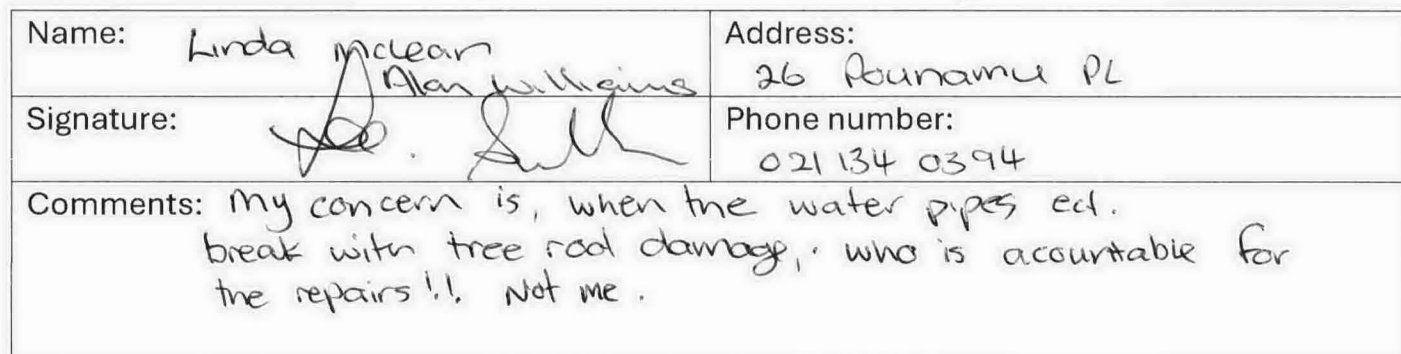 Name: Linda McLean
Alan Williams
Address:
26 Pounamu PL
Signature:
Phone number:
021 134 0394
Comments: My concern is, when the water pipes ect.
break with tree root damage, who is acountable for
the repairs!!. Not me.